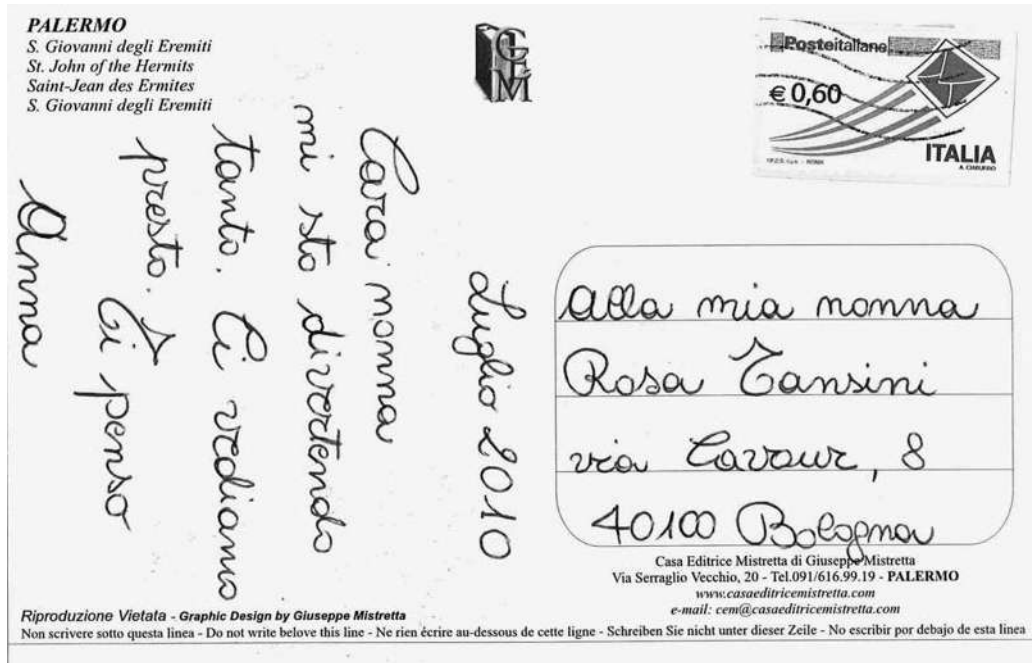 PALERMO
S. Giovanni degli Eremiti
St. John of the Hermits
Saint-Jean des Ermites
S. Giovanni degli Eremiti
CEM
Posteitaliane
€ 0,60
ITALIA
Luglio 2010
Cara nonna
mi sto divertendo
tanto. Ci vediamo
presto. Ti penso
Anna
Alla mia nonna
Rosa Tansini
via Cavour, 8
40100 Bologna
Casa Editrice Mistretta di Giuseppe Mistretta
Via Serraglio Vecchio, 20 - Tel.091/616.99.19 - PALERMO
www.casaeditricemistretta.com
e-mail: cem@casaeditricemistretta.com
Riproduzione Vietata - Graphic Design by Giuseppe Mistretta
Non scrivere sotto questa linea - Do not write belove this line - Ne rien écrire au-dessous de cette ligne - Schreiben Sie nicht unter dieser Zeile - No escribir por debajo de esta linea